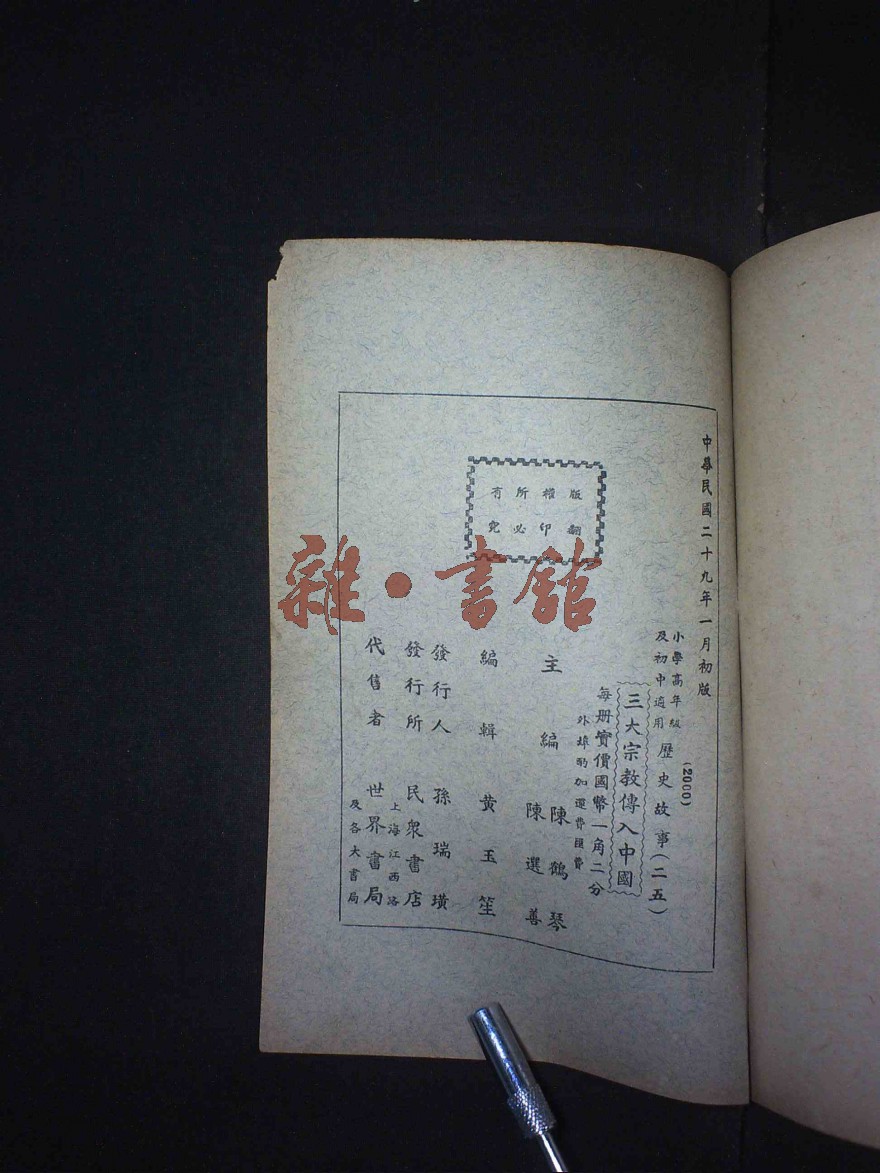 中華民國二十九年一月初版
(2000)
小學高年級
及初中適用
歷史故事(二五)
三大宗教傳入中國
每册實價國幣一角二分
外埠酌加運費匯費
主編 陳鶴琴
陳選善
編輯 黃玉笙
發行人 孫瑞璜
發行所 民衆書店
上海江西路
代售者 世界書局
及各大書局
版權所有
翻印必究
雜·書館